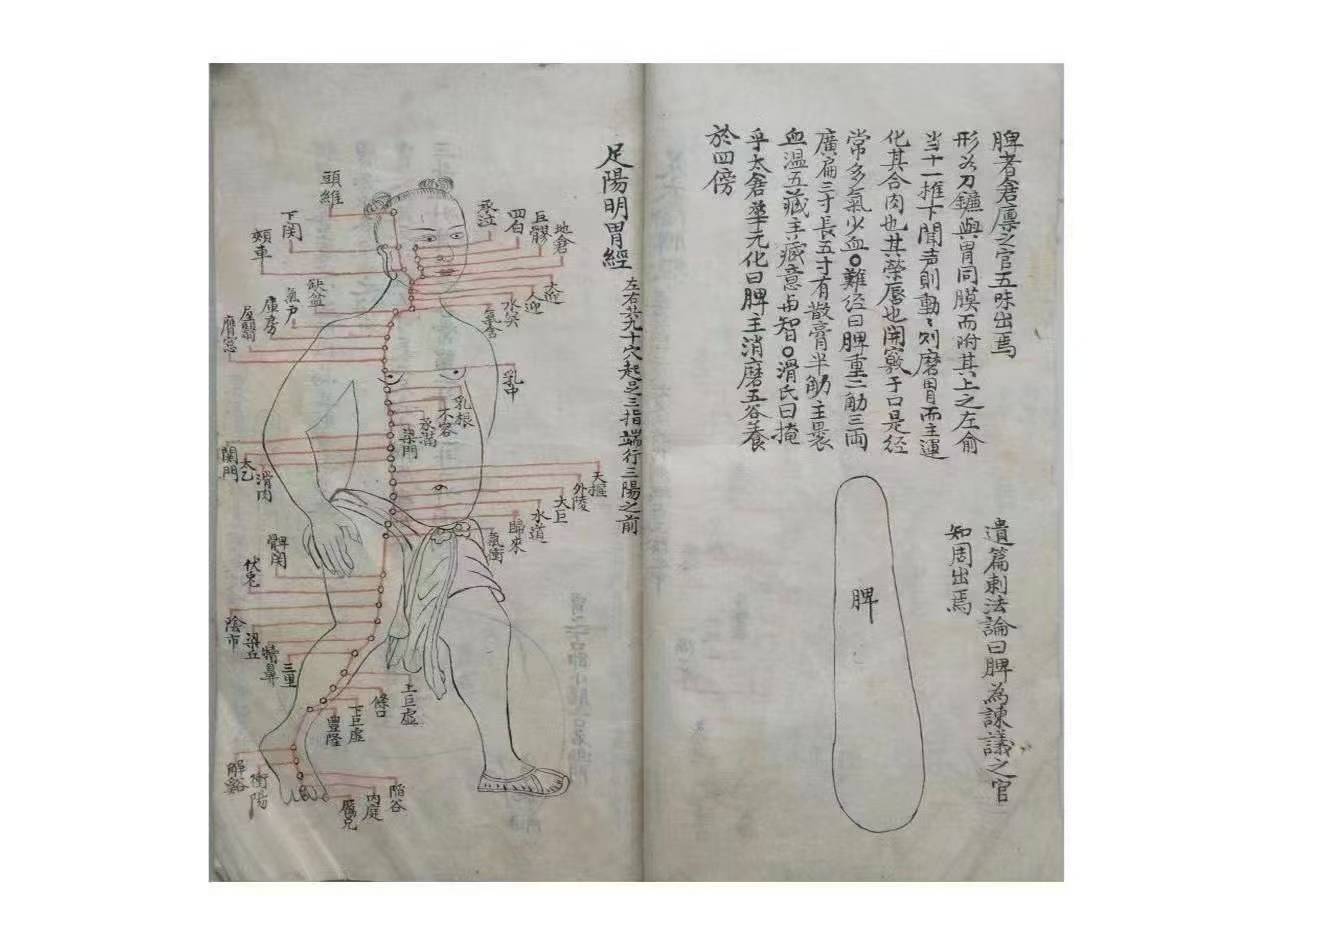 脾者倉廪之官五味出焉
形如刀鐮與胃同膜而附其上之左俞
当十一椎下聞声則動〻則磨胃而主運
化其合肉也其荣唇也開竅于口是经
常多氣少血○難经曰脾重二觔三両
廣扁三寸長五寸有散膏半觔主裹
血温五藏主藏意与智○滑氏曰掩
乎太倉華元化曰脾主消磨五谷養
於四傍
遺篇刺法論曰脾為諫議之官
知周出焉
脾
足陽明胃經
左右共九十穴起足三指端行三陽之前
地倉
巨髎
四白
承泣
頭維
下関
頰車
大迎
人迎
水突
氣舍
缺盆
氣戶
庫房
屋翳
膺窓
乳中
乳根
不容
承滿
梁門
関門
太乙
滑肉
天摳
外陵
大巨
水道
歸來
氣衝
髀関
伏兎
陰市
梁丘
犢鼻
三里
上巨虚
條口
下巨虚
豐隆
解谿
衝陽
陷谷
内庭
厲兌